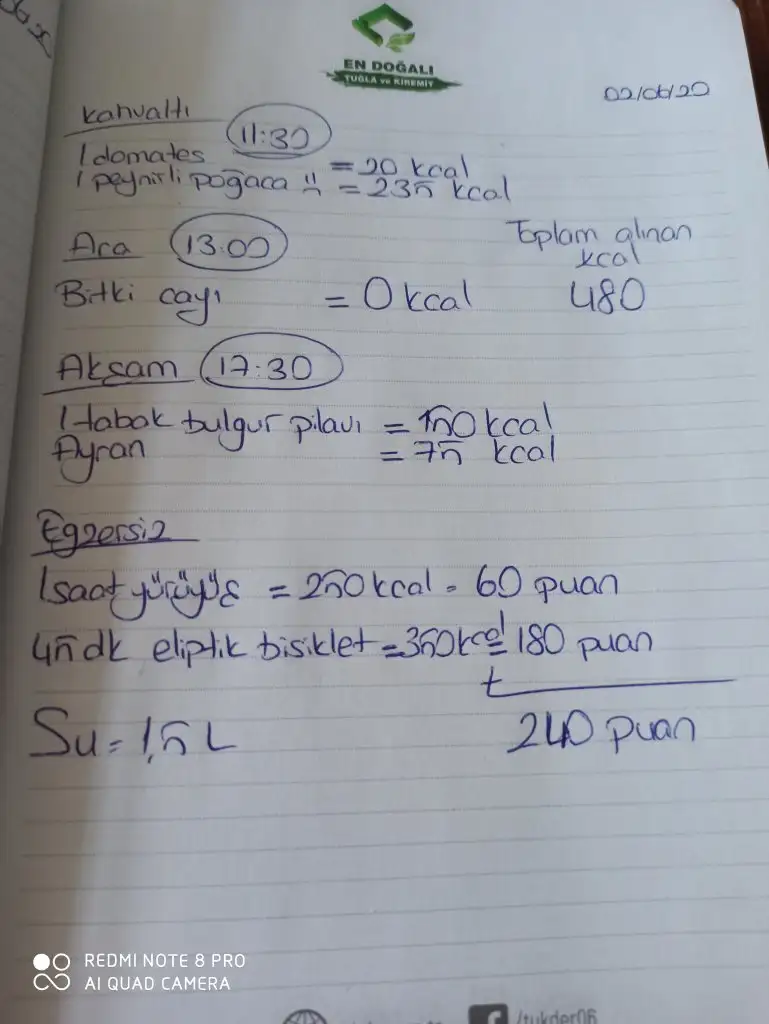 EN DOĞALI
TUĞLA ve KİREMİT
02/06/20
Kahvaltı
11:30
1 domates = 20 kcal
1 peynirli poğaca = 235 kcal
Ara 13:00
Toplam alınan
kcal
Bitki cayı = 0 kcal 480
Akşam 17:30
1 tabak bulgur pilavı = 150 kcal
Ayran = 75 kcal
Egzersiz
1 saat yürüyüş = 250 kcal = 60 puan
45 dk eliptik bisiklet = 350 kcal = 180 puan
+
Su = 1,5 L 240 puan
REDMI NOTE 8 PRO
AI QUAD CAMERA
/tukder06